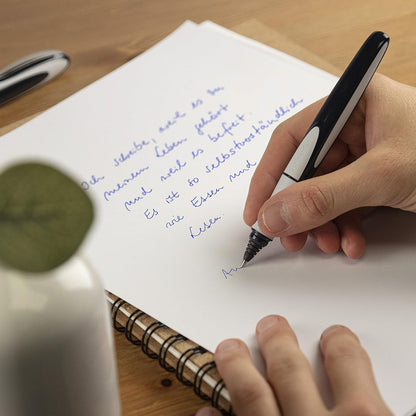 Ich schreibe, weil es zu
meinem Leben gehört
und weil es befreit.
Es ist so selbstverständlich
wie Essen und
Lesen.